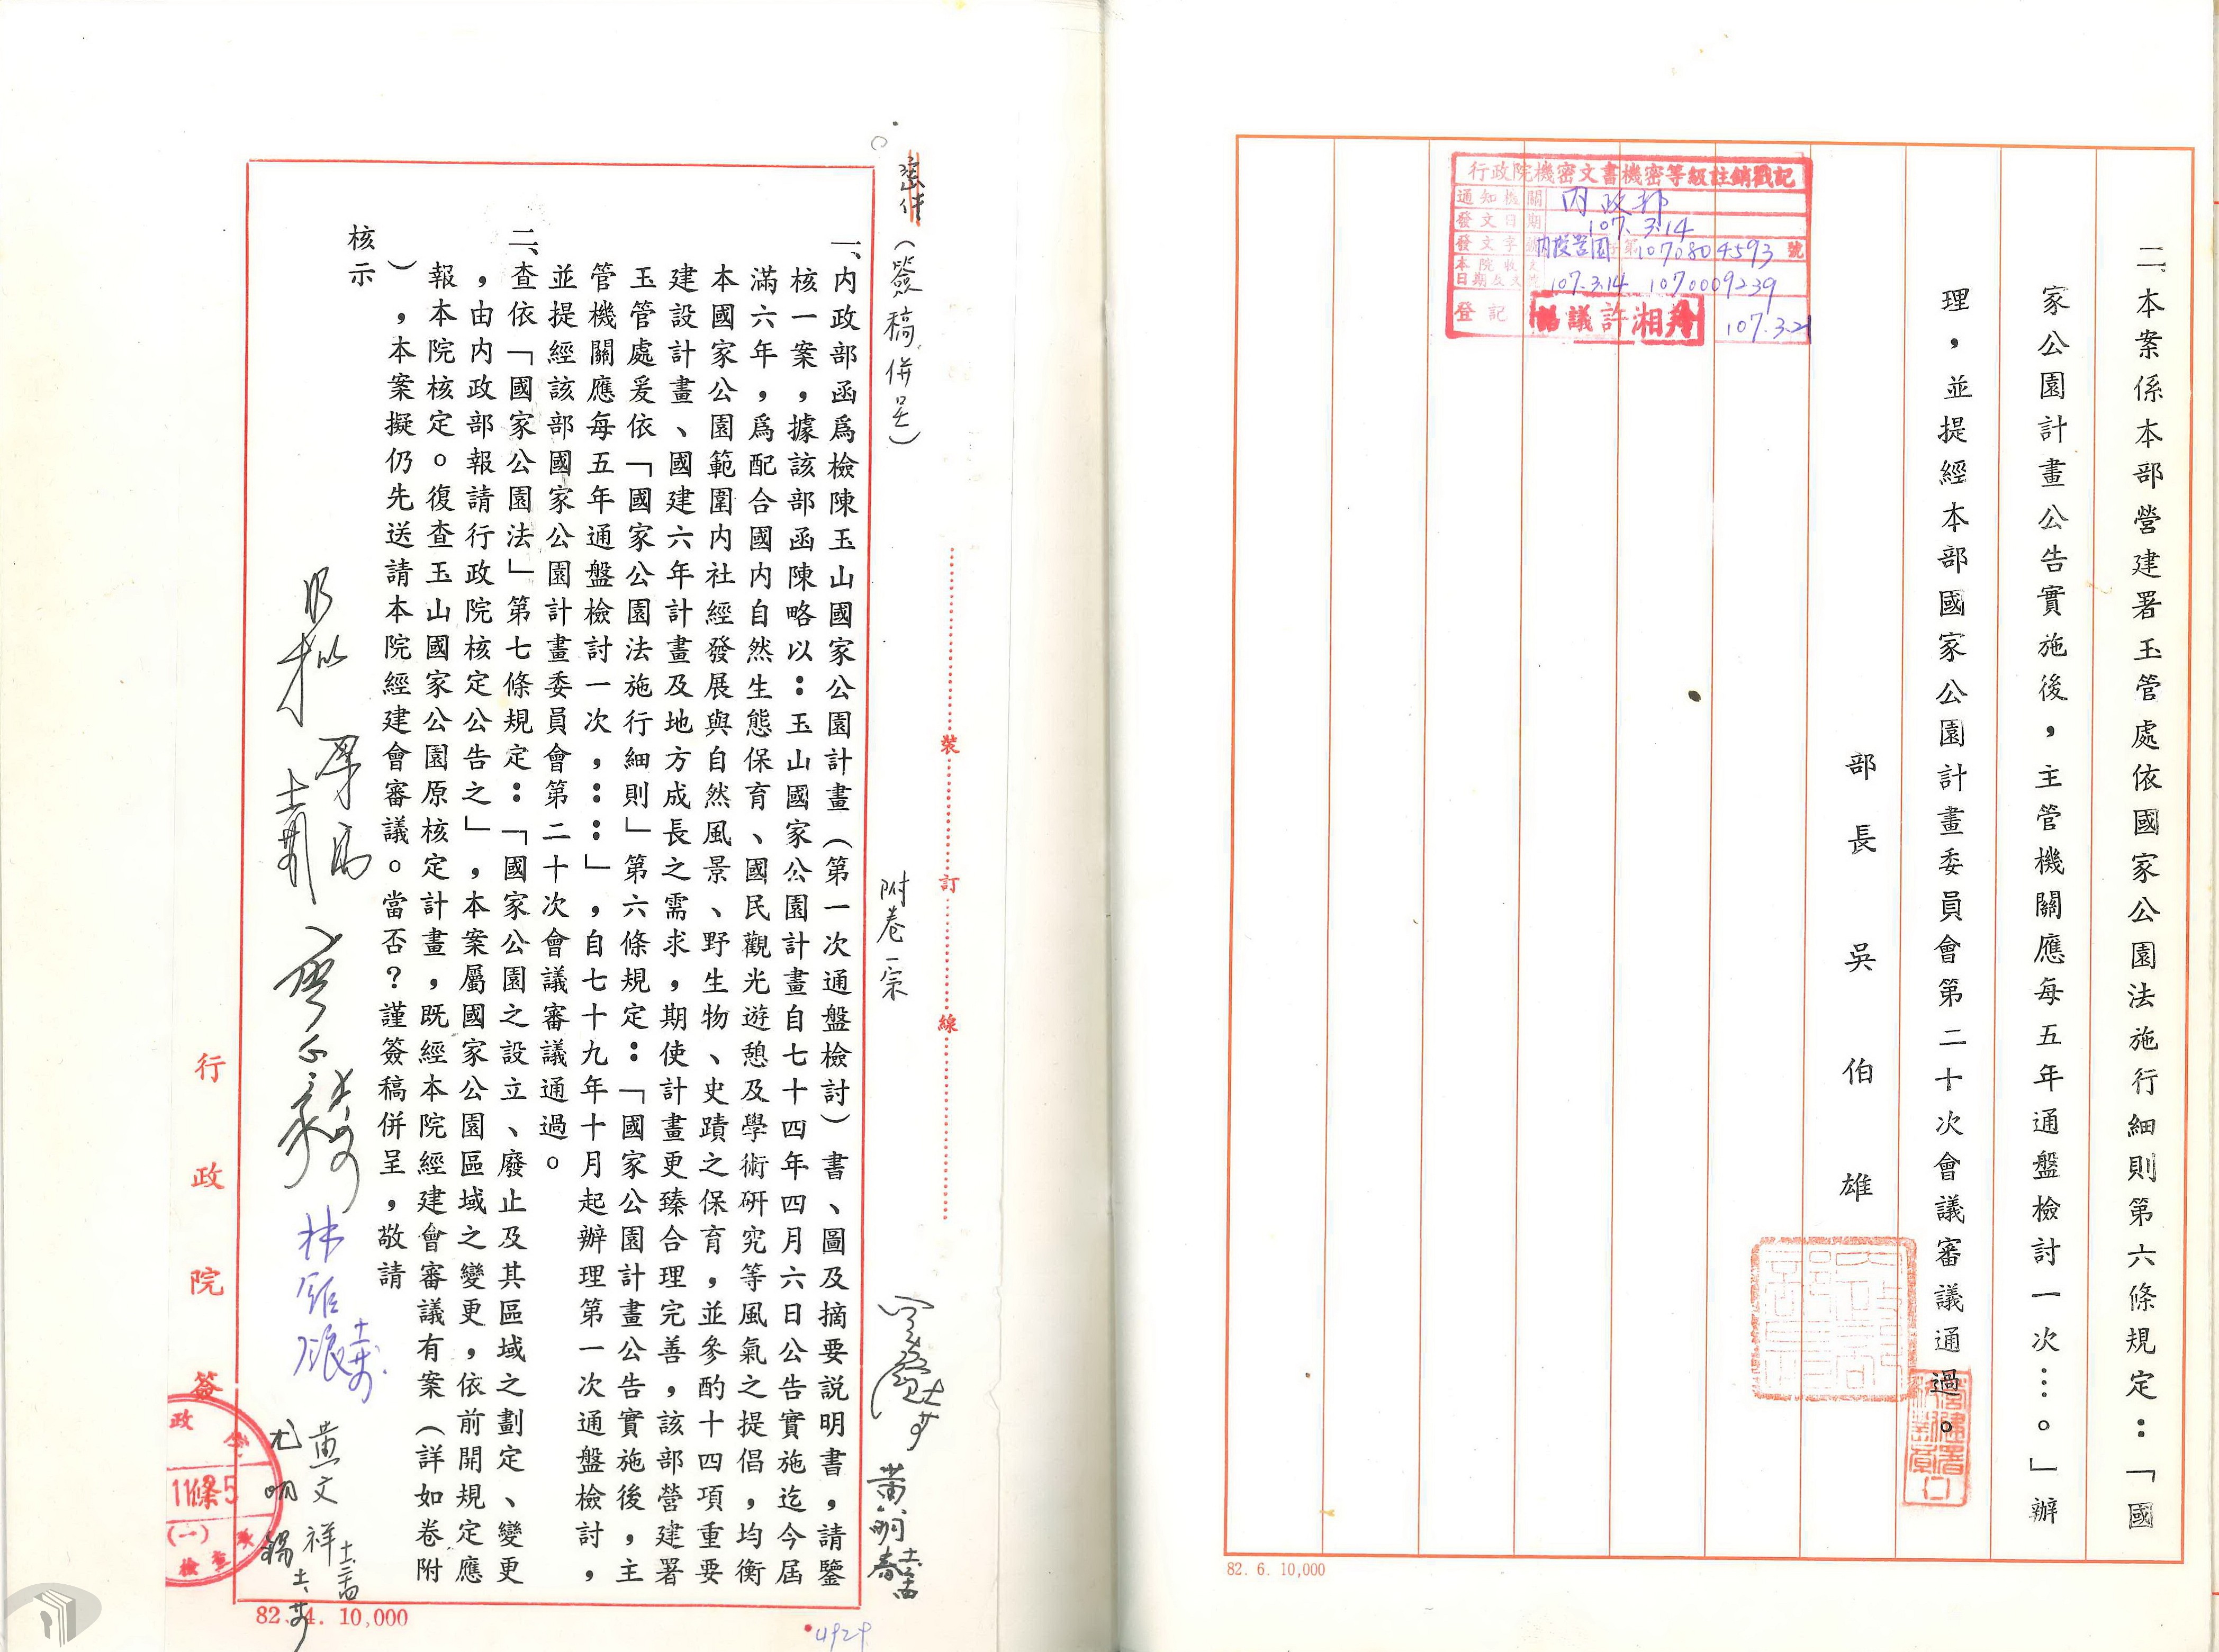 二、本案係本部營建署玉管處依國家公園法施行細則第六條規定：「國
家公園計畫公告實施後，主管機關應每五年通盤檢討一次…。」辦
理，並提經本部國家公園計畫委員會第二十次會議審議通過。
部長 吳 伯 雄
行政院機密文書機密等級註銷戳記
通知機關 內政部
發文日期 107.3.14
發文字 內授營園字第1070804593號
本院收文日期及文號 107.3.14 1070009239
登記 許湘 107.3.21
82. 6. 10,000
密件（簽稿併呈）
裝 訂 線
附卷一宗
一、內政部函為檢陳玉山國家公園計畫（第一次通盤檢討）書、圖及摘要說明書，請鑒
核一案，據該部函陳略以：玉山國家公園計畫自七十四年四月六日公告實施迄今屆
滿六年，為配合國內自然生態保育、國民觀光遊憩及學術研究等風氣之提倡，均衡
本國家公園範圍內社經發展與自然風景、野生物、史蹟之保育，並參酌十四項重要
建設計畫、國建六年計畫及地方成長之需求，期使計畫更臻合理完善，該部營建署
玉管處爰依「國家公園法施行細則」第六條規定：「國家公園計畫公告實施後，主
管機關應每五年通盤檢討一次，……」，自七十九年十月起辦理第一次通盤檢討，
並提經該部國家公園計畫委員會第二十次會議審議通過。
二、查依「國家公園法」第七條規定：「國家公園之設立、廢止及其區域之劃定、變更
，由內政部報請行政院核定公告之」，本案屬國家公園區域之變更，依前開規定應
報本院核定。復查玉山國家公園原核定計畫，既經本院經建會審議有案（詳如卷附
），本案擬仍先送請本院經建會審議。當否？謹簽稿併呈，敬請
核示
黃文祥
尤明錫
行政院簽
檢查
82. 4. 10,000
4929